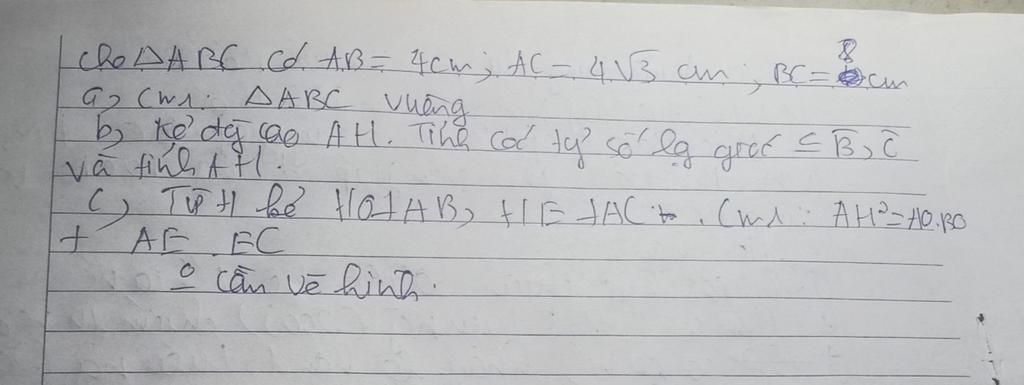 cho △ABC có AB = 4cm; AC = 4√3 cm; BC = 8cm
a, Cm: △ABC vuông
b, Kẻ đg cao AH. Tính các tỷ số lg giác ∠B, C
và tính AH.
c, Từ H kẻ HO⊥AB, HE⊥AC. Cm: AH² = AO.BO
+ AE.EC
o Cần vẽ hình.